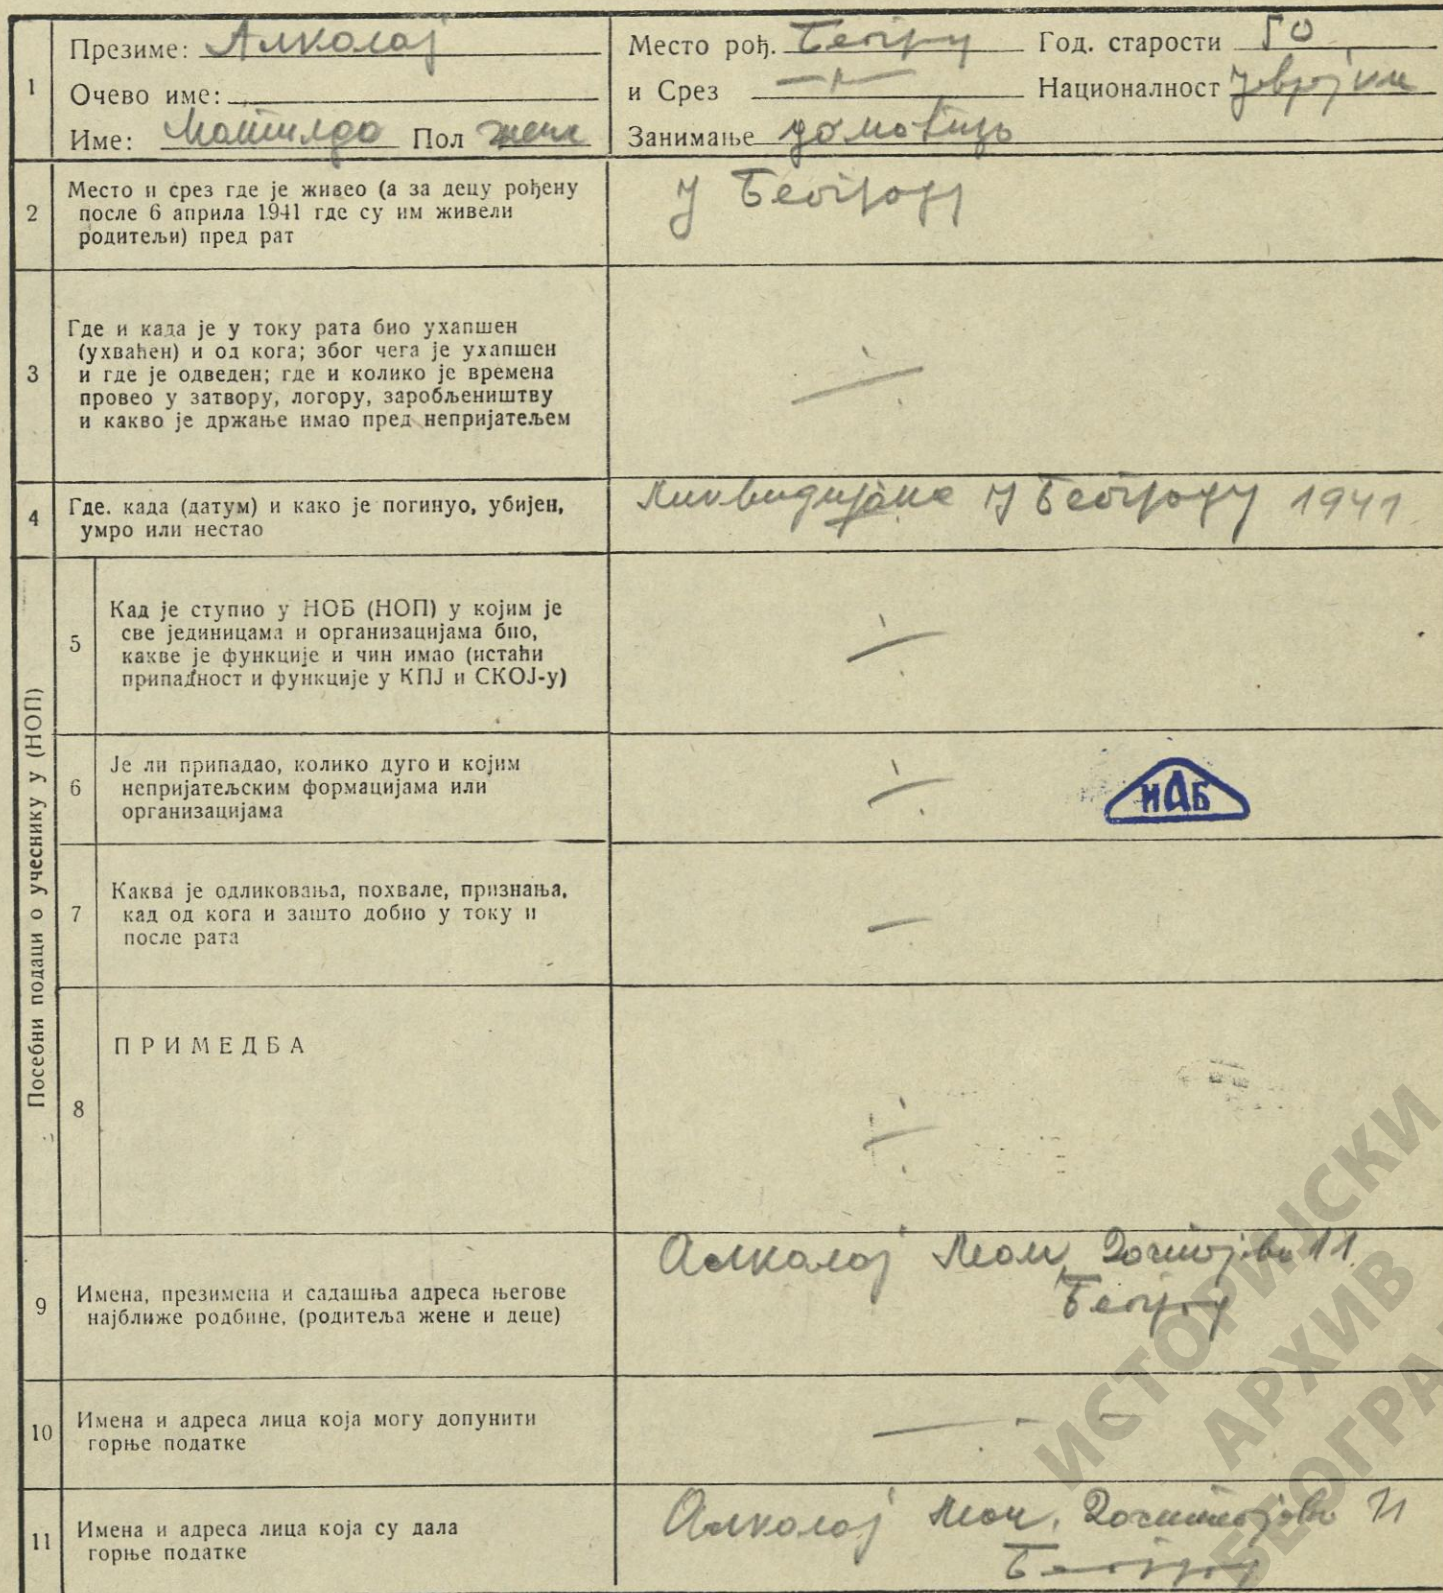 1
Презиме: Алколај
Очево име:
Име: Матилда Пол женс
Место рођ. Београд Год. старости 50
и Срез —〃— Националност Јеврејка
Занимање домаћица
2
Место и срез где је живео (а за децу рођену
после 6 априла 1941 где су им живели
родитељи) пред рат
У Београду
3
Где и када је у току рата био ухапшен
(ухваћен) и од кога; због чега је ухапшен
и где је одведен; где и колико је времена
провео у затвору, логору, заробљеништву
и какво је држање имао пред непријатељем
4
Где. када (датум) и како је погинуо, убијен,
умро или нестао
Ликвидирана у Београду 1941
Посебни подаци о учеснику у (НОП)
5
Кад је ступио у НОБ (НОП) у којим је
све јединицама и организацијама био,
какве је функције и чин имао (истаћи
припадност и функције у КПЈ и СКОЈ-у)
6
Је ли припадао, колико дуго и којим
непријатељским формацијама или
организацијама
ИАБ
7
Каква је одликовања, похвале, признања,
кад од кога и зашто добио у току и
после рата
8
ПРИМЕДБА
9
Имена, презимена и садашња адреса његове
најближе родбине, (родитеља жене и деце)
Алколај Леон, 11.
Београд
10
Имена и адреса лица која могу допунити
горње податке
11
Имена и адреса лица која су дала
горње податке
Алколај Леон, 11
Београд
ИСТОРИЈСКИ
АРХИВ
БЕОГРА